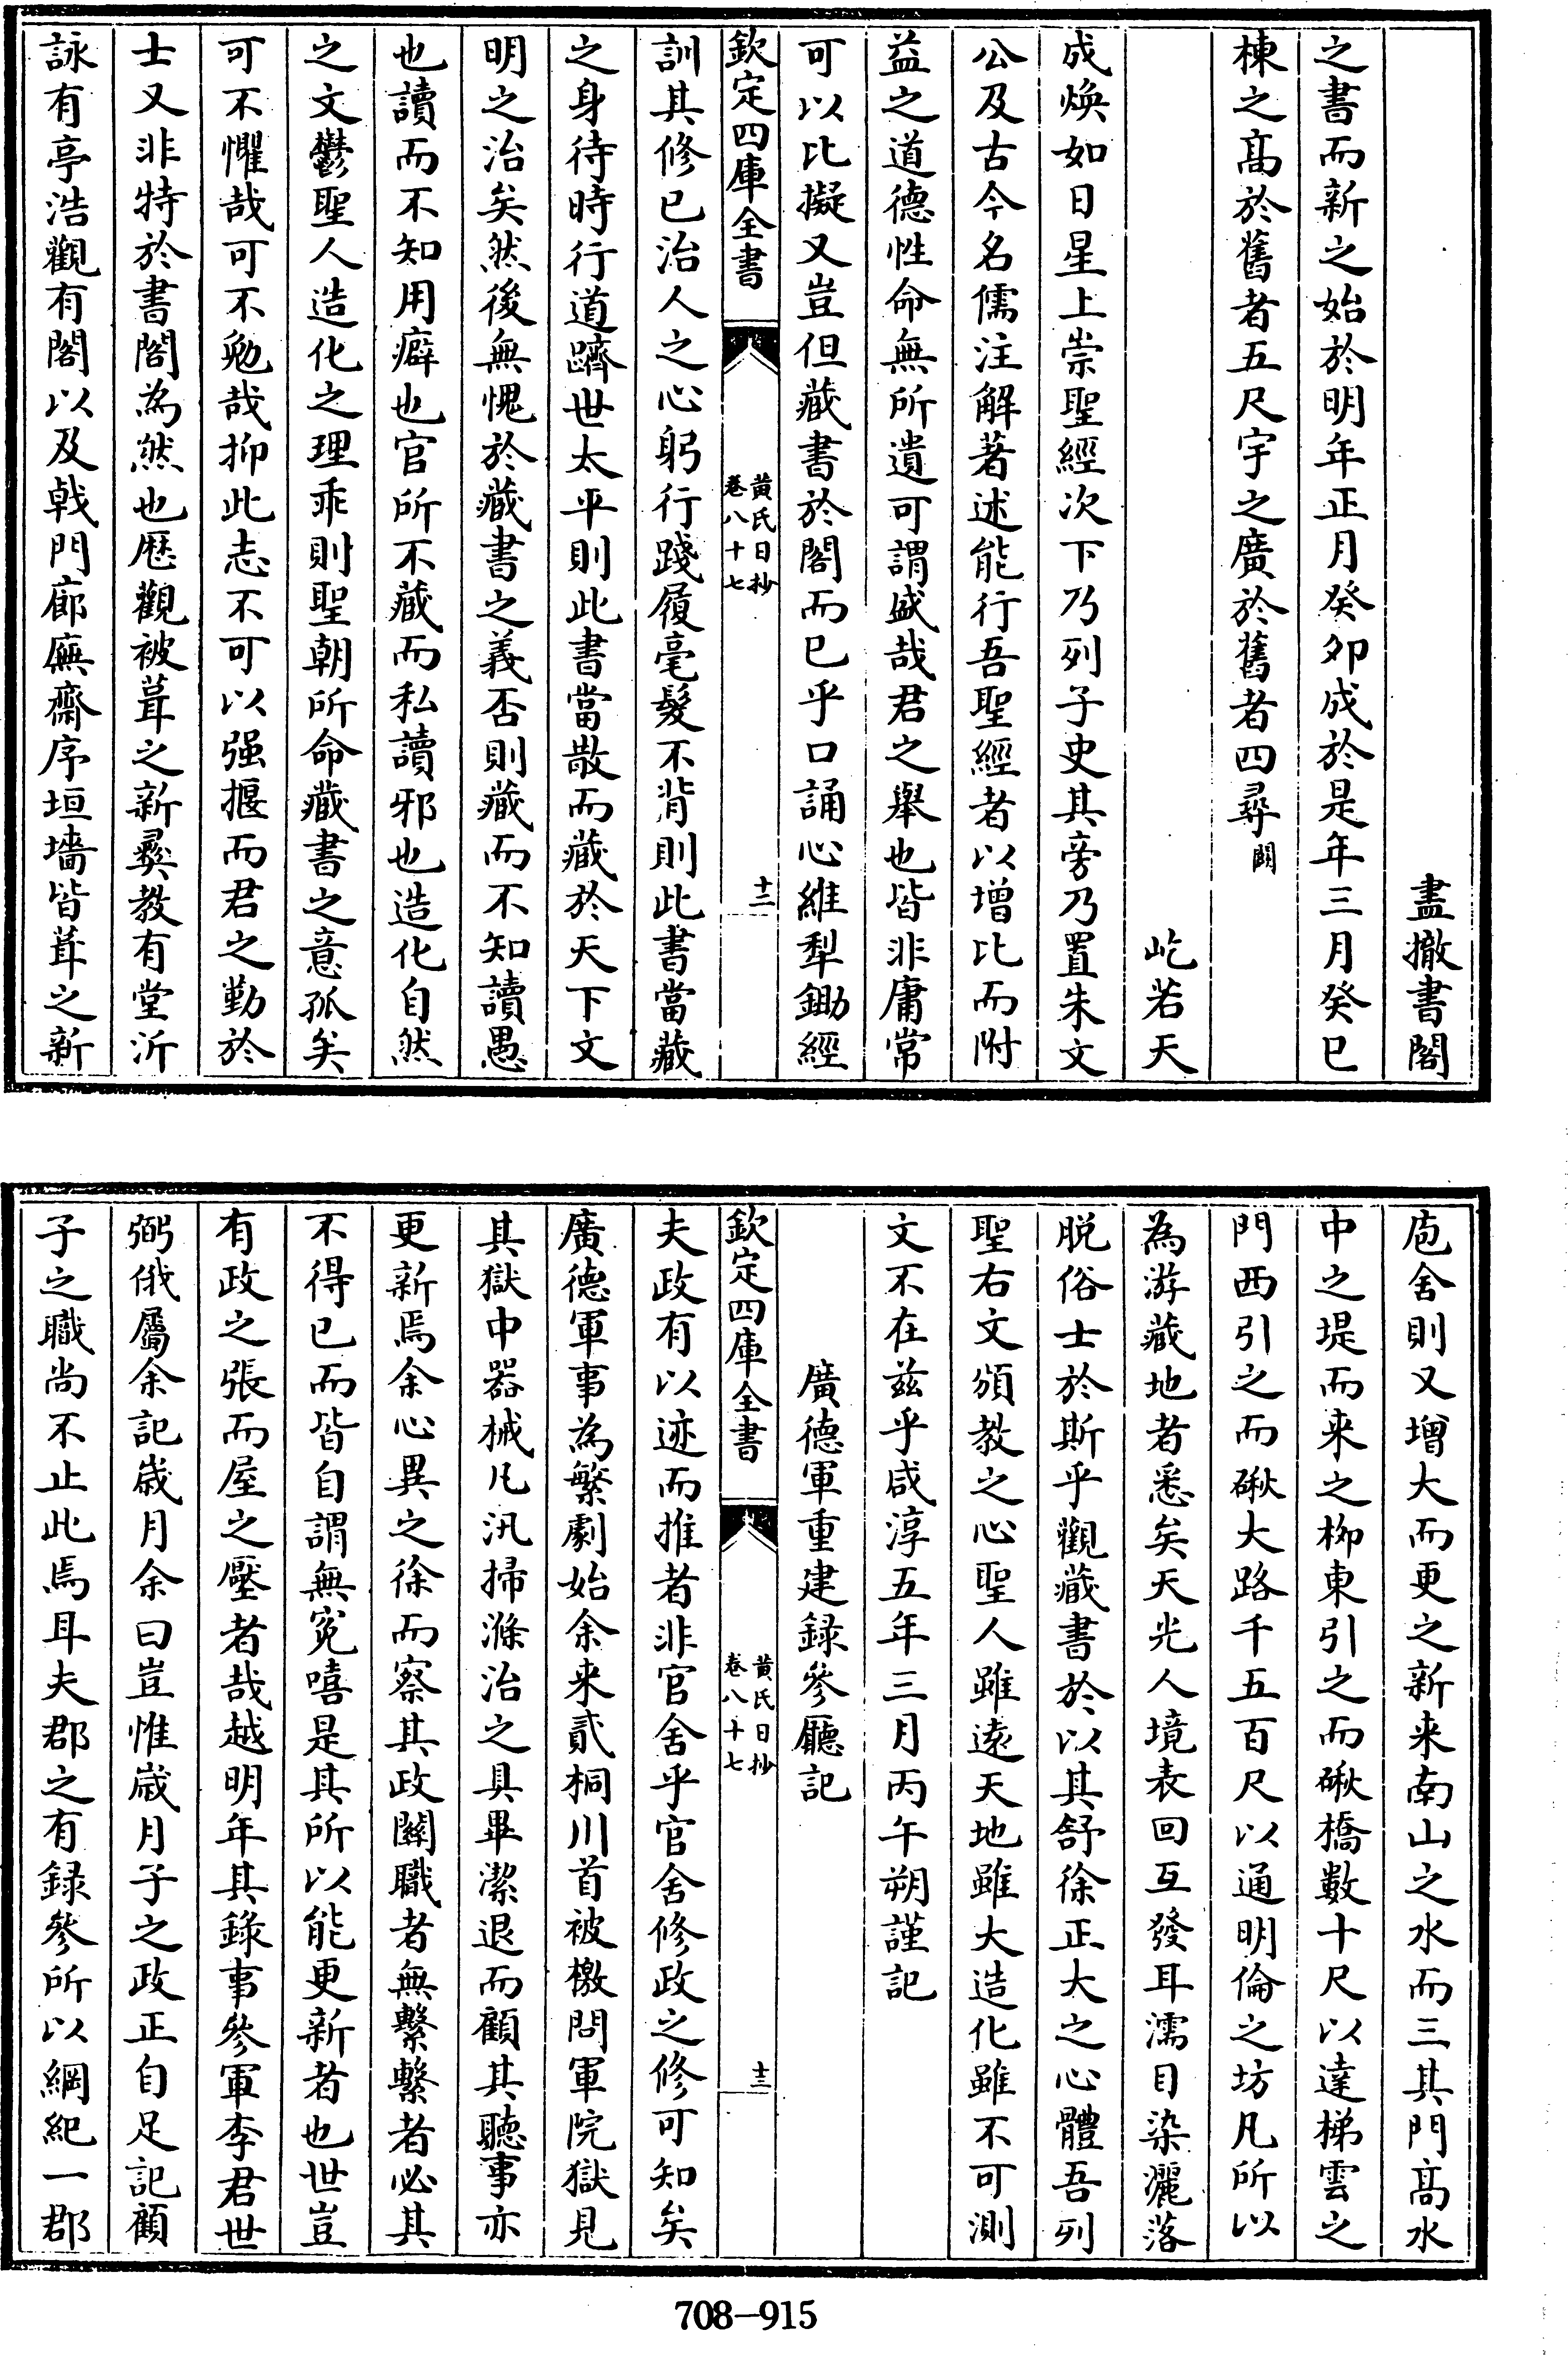 盡撤書閣
之書而新之始於明年正月癸卯成於是年三月癸巳
棟之髙於舊者五尺宇之廣於舊者四尋闕
屹若天
成煥如日星上崇聖經次下乃列子史其旁乃置朱文
公及古今名儒注解著述能行吾聖經者以增比而附
益之道德性命無所遺可謂盛哉君之舉也皆非庸常
可以比擬又豈但藏書於閣而已乎口誦心維犁鋤經
欽定四庫全書
黄氏日抄
卷八十七
十二
訓其修已治人之心躬行踐履毫髮不背則此書當藏
之身待時行道躋世太平則此書當散而藏於天下文
明之治矣然後無愧於藏書之義否則藏而不知讀愚
也讀而不知用癖也官所不藏而私讀邪也造化自然
之文鬱聖人造化之理乖則聖朝所命藏書之意孤矣
可不懼哉可不勉哉抑此志不可以强揠而君之勤於
士又非特於書閣為然也歴觀被葺之新彛教有堂沂
詠有亭浩觀有閣以及戟門廊廡齋序垣墻皆葺之新
庖舍則又增大而更之新来南山之水而三其門髙水
中之堤而来之栁東引之而䃂橋數十尺以達梯雲之
門西引之而䃂大路千五百尺以通明倫之坊凡所以
為游藏地者悉矣天光人境表回互發耳濡目染灑落
脱俗士於斯乎觀藏書於以其舒徐正大之心體吾列
聖右文頒教之心聖人雖逺天地雖大造化雖不可測
文不在兹乎咸淳五年三月丙午朔謹記
廣德軍重建録參廳記
欽定四庫全書
黄氏日抄
卷八十七
十三
夫政有以迹而推者非官舍乎官舍修政之修可知矣
廣德軍事為繁劇始余来貳桐川首被檄問軍院獄見
其獄中器械凡汛掃滌治之具畢潔退而顧其聽事亦
更新焉余心異之徐而察其政闗職者無繫繫者必其
不得已而皆自謂無寃嘻是其所以能更新者也世豈
有政之張而屋之壓者哉越明年其錄事參軍李君世
弼俄屬余記嵗月余曰豈惟嵗月子之政正自足記顧
子之職尚不止此焉耳夫郡之有録參所以綱紀一郡
708-915